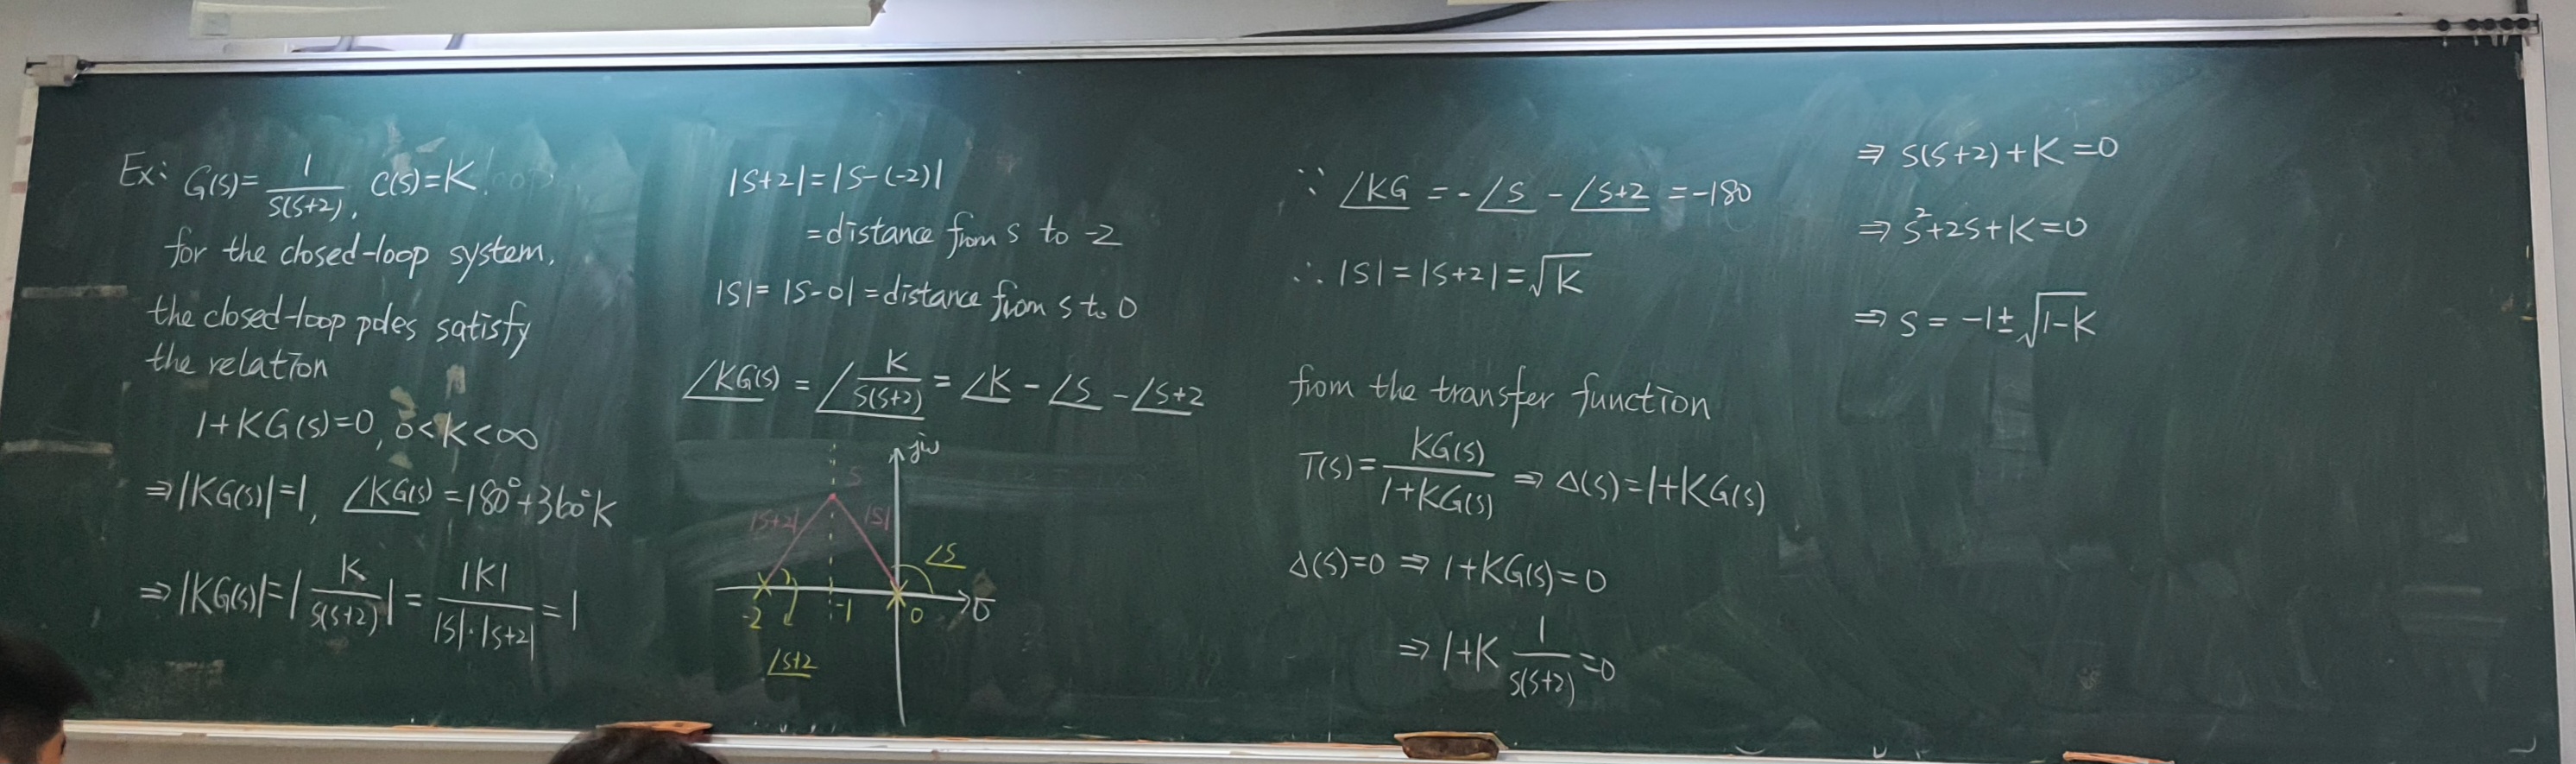 Ex: G(s)=1/(s(s+2)), C(s)=K
for the closed-loop system,
the closed-loop poles satisfy
the relation
1+KG(s)=0, 0<K<∞
⇒|KG(s)|=1, ∠KG(s) =180°+360°K
⇒|KG(s)|=|K/(s(s+2))|=|K|/(|s|·|s+2|)=1
|s+2|=|s-(-2)|
=distance from s to -2
|s|=|s-0|=distance from s to 0
∠KG(s) = ∠K/(s(s+2)) = ∠K - ∠s - ∠s+2
jω
s
|s+2| |s|
∠s
-2 -1 0 σ
∠s+2
∵ ∠KG = -∠s - ∠s+2 =-180
∴ |s|=|s+2|=√K
from the transfer function
T(s)=KG(s)/(1+KG(s)) ⇒ Δ(s)=1+KG(s)
Δ(s)=0 ⇒ 1+KG(s)=0
⇒ 1+K 1/(s(s+2))=0
⇒ s(s+2)+K=0
⇒ s²+2s+K=0
⇒ s= -1±√(1-K)